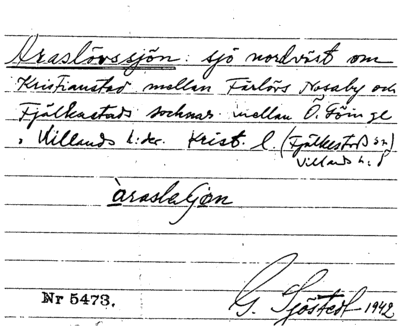 Araslövssjön: sjö nordväst om
Kristianstad mellan Färlövs Nosaby och
Fjälkestads socknar mellan Ö. Göinge
o. Villands h:der. Krist. l. (Fjälkestads sn)
Villands h:d
àraslaʃøn
Nr 5473.
G. Sjöstedt 1942